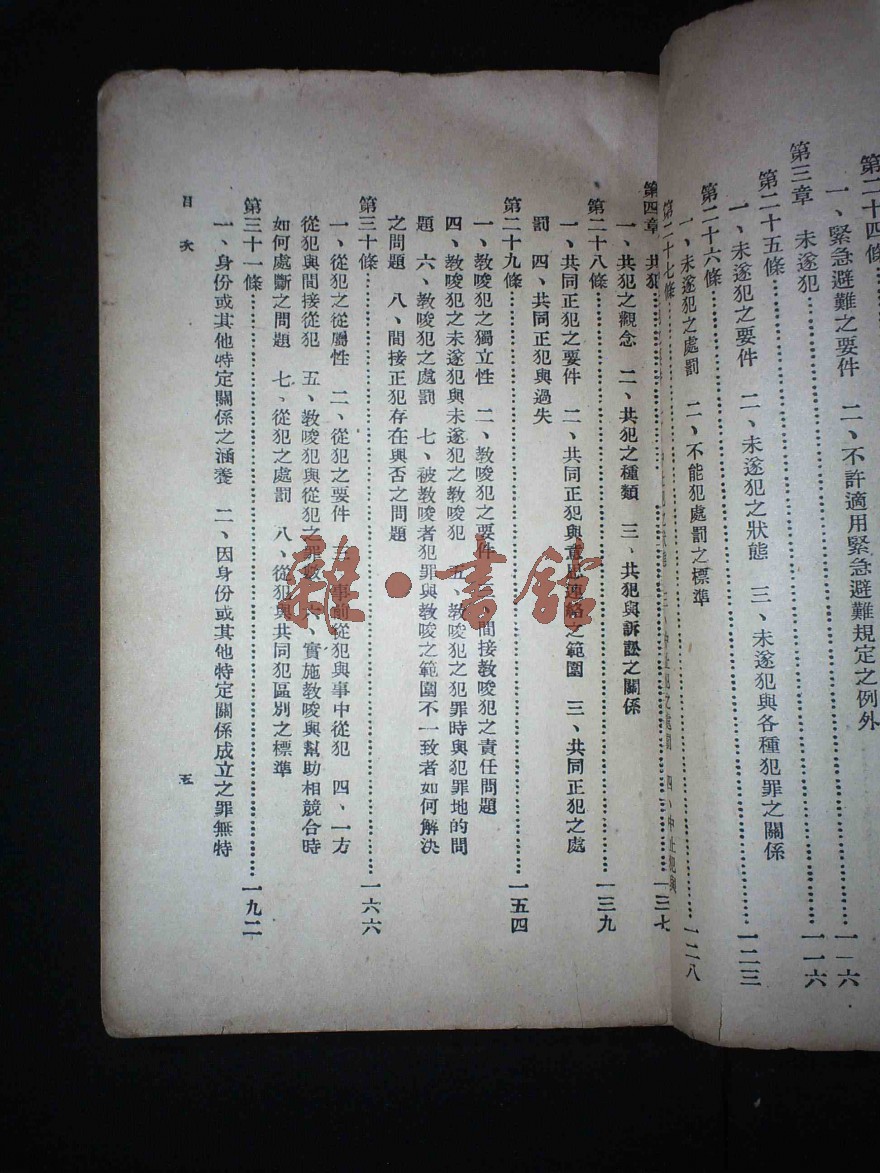 第二十四條……一一六
一、緊急避難之要件　二、不許適用緊急避難規定之例外
第三章　未遂犯……一一六
第二十五條……一二三
一、未遂犯之要件　二、未遂犯之狀態　三、未遂犯與各種犯罪之關係
第二十六條……一二八
一、未遂犯之處罰　二、不能犯處罰之標準
第二十七條
第四章　共犯……一三七
一、共犯之觀念　二、共犯之種類　三、共犯與訴訟之關係
第二十八條……一三九
一、共同正犯之要件　二、共同正犯與意思連絡之範圍　三、共同正犯之處
罰　四、共同正犯與過失
第二十九條……一五四
一、教唆犯之獨立性　二、教唆犯之要件　三、間接教唆犯之責任問題
四、教唆犯之未遂犯與未遂犯之教唆犯　五、教唆犯之犯罪時與犯罪地的問
題　六、教唆犯之處罰　七、被教唆者犯罪與教唆之範圍不一致者如何解決
之問題　八、間接正犯存在與否之問題
第三十條……一六六
一、從犯之從屬性　二、從犯之要件　三、事前從犯與事中從犯　四、一方
從犯與間接從犯　五、教唆犯與從犯之罪數　六、實施教唆與幫助相競合時
如何處斷之問題　七、從犯之處罰　八、從犯與共同犯區別之標準
第三十一條……一九二
一、身份或其他特定關係之涵養　二、因身份或其他特定關係成立之罪無特
目次
五
雜·書館